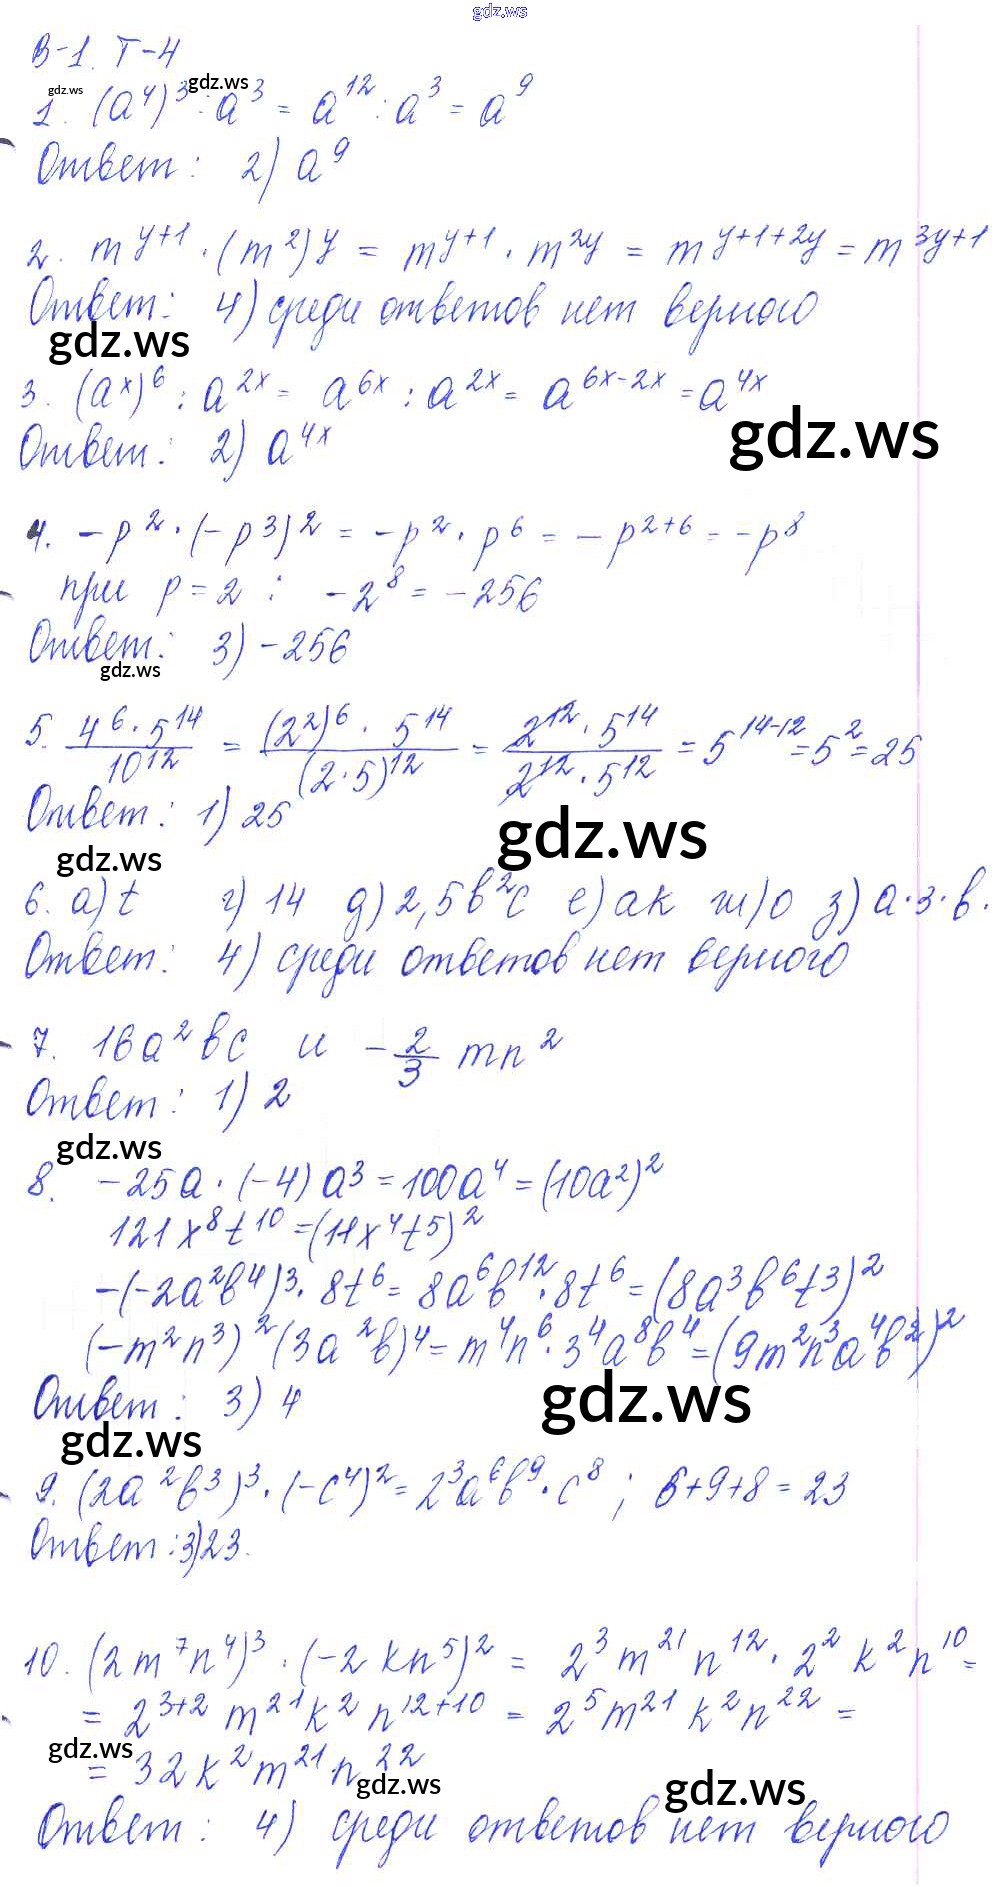 gdz.ws
В-1. Т-4
gdz.ws gdz.ws
1. (a⁴)³ : a³ = a¹² : a³ = a⁹
Ответ: 2) a⁹
2. m^(y+1) · (m²)^y = m^(y+1) · m^(2y) = m^(y+1+2y) = m^(3y+1)
Ответ: 4) среди ответов нет верного
gdz.ws
3. (a^x)⁶ : a^(2x) = a^(6x) : a^(2x) = a^(6x-2x) = a^(4x)
gdz.ws
Ответ: 2) a^(4x)
4. -p² · (-p³)² = -p² · p⁶ = -p^(2+6) = -p⁸
при p = 2 : -2⁸ = -256
Ответ: 3) -256
gdz.ws
5. (4⁶ · 5¹⁴)/(10¹²) = ((2²)⁶ · 5¹⁴)/((2·5)¹²) = (2¹² · 5¹⁴)/(2¹² · 5¹²) = 5^(14-12) = 5² = 25
Ответ: 1) 25
gdz.ws gdz.ws
6. а) t г) 14 д) 2,5b²c е) ak ж) 0 з) a·3·b.
Ответ: 4) среди ответов нет верного
7. 16a²bc и -2/3 mn²
Ответ: 1) 2
gdz.ws
8. -25a · (-4) a³ = 100a⁴ = (10a²)²
121x⁸t¹⁰ = (11x⁴t⁵)²
-(-2a²b⁴)³ · 8t⁶ = 8a⁶b¹² · 8t⁶ = (8a³b⁶t³)²
(-m²n³)² (3a²b)⁴ = m⁴n⁶ · 3⁴a⁸b⁴ = (9m²n³a⁴b²)²
Ответ: 3) 4
gdz.ws gdz.ws
9. (2a²b³)³ · (-c⁴)² = 2³a⁶b⁹ · c⁸ ; 6+9+8 = 23
Ответ: 3) 23.
10. (2m⁷n⁴)³ · (-2kn⁵)² = 2³m²¹n¹² · 2²k²n¹⁰ =
= 2^(3+2) m²¹k²n^(12+10) = 2⁵m²¹k²n²² =
gdz.ws
= 32k²m²¹n²²
gdz.ws gdz.ws
Ответ: 4) среди ответов нет верного